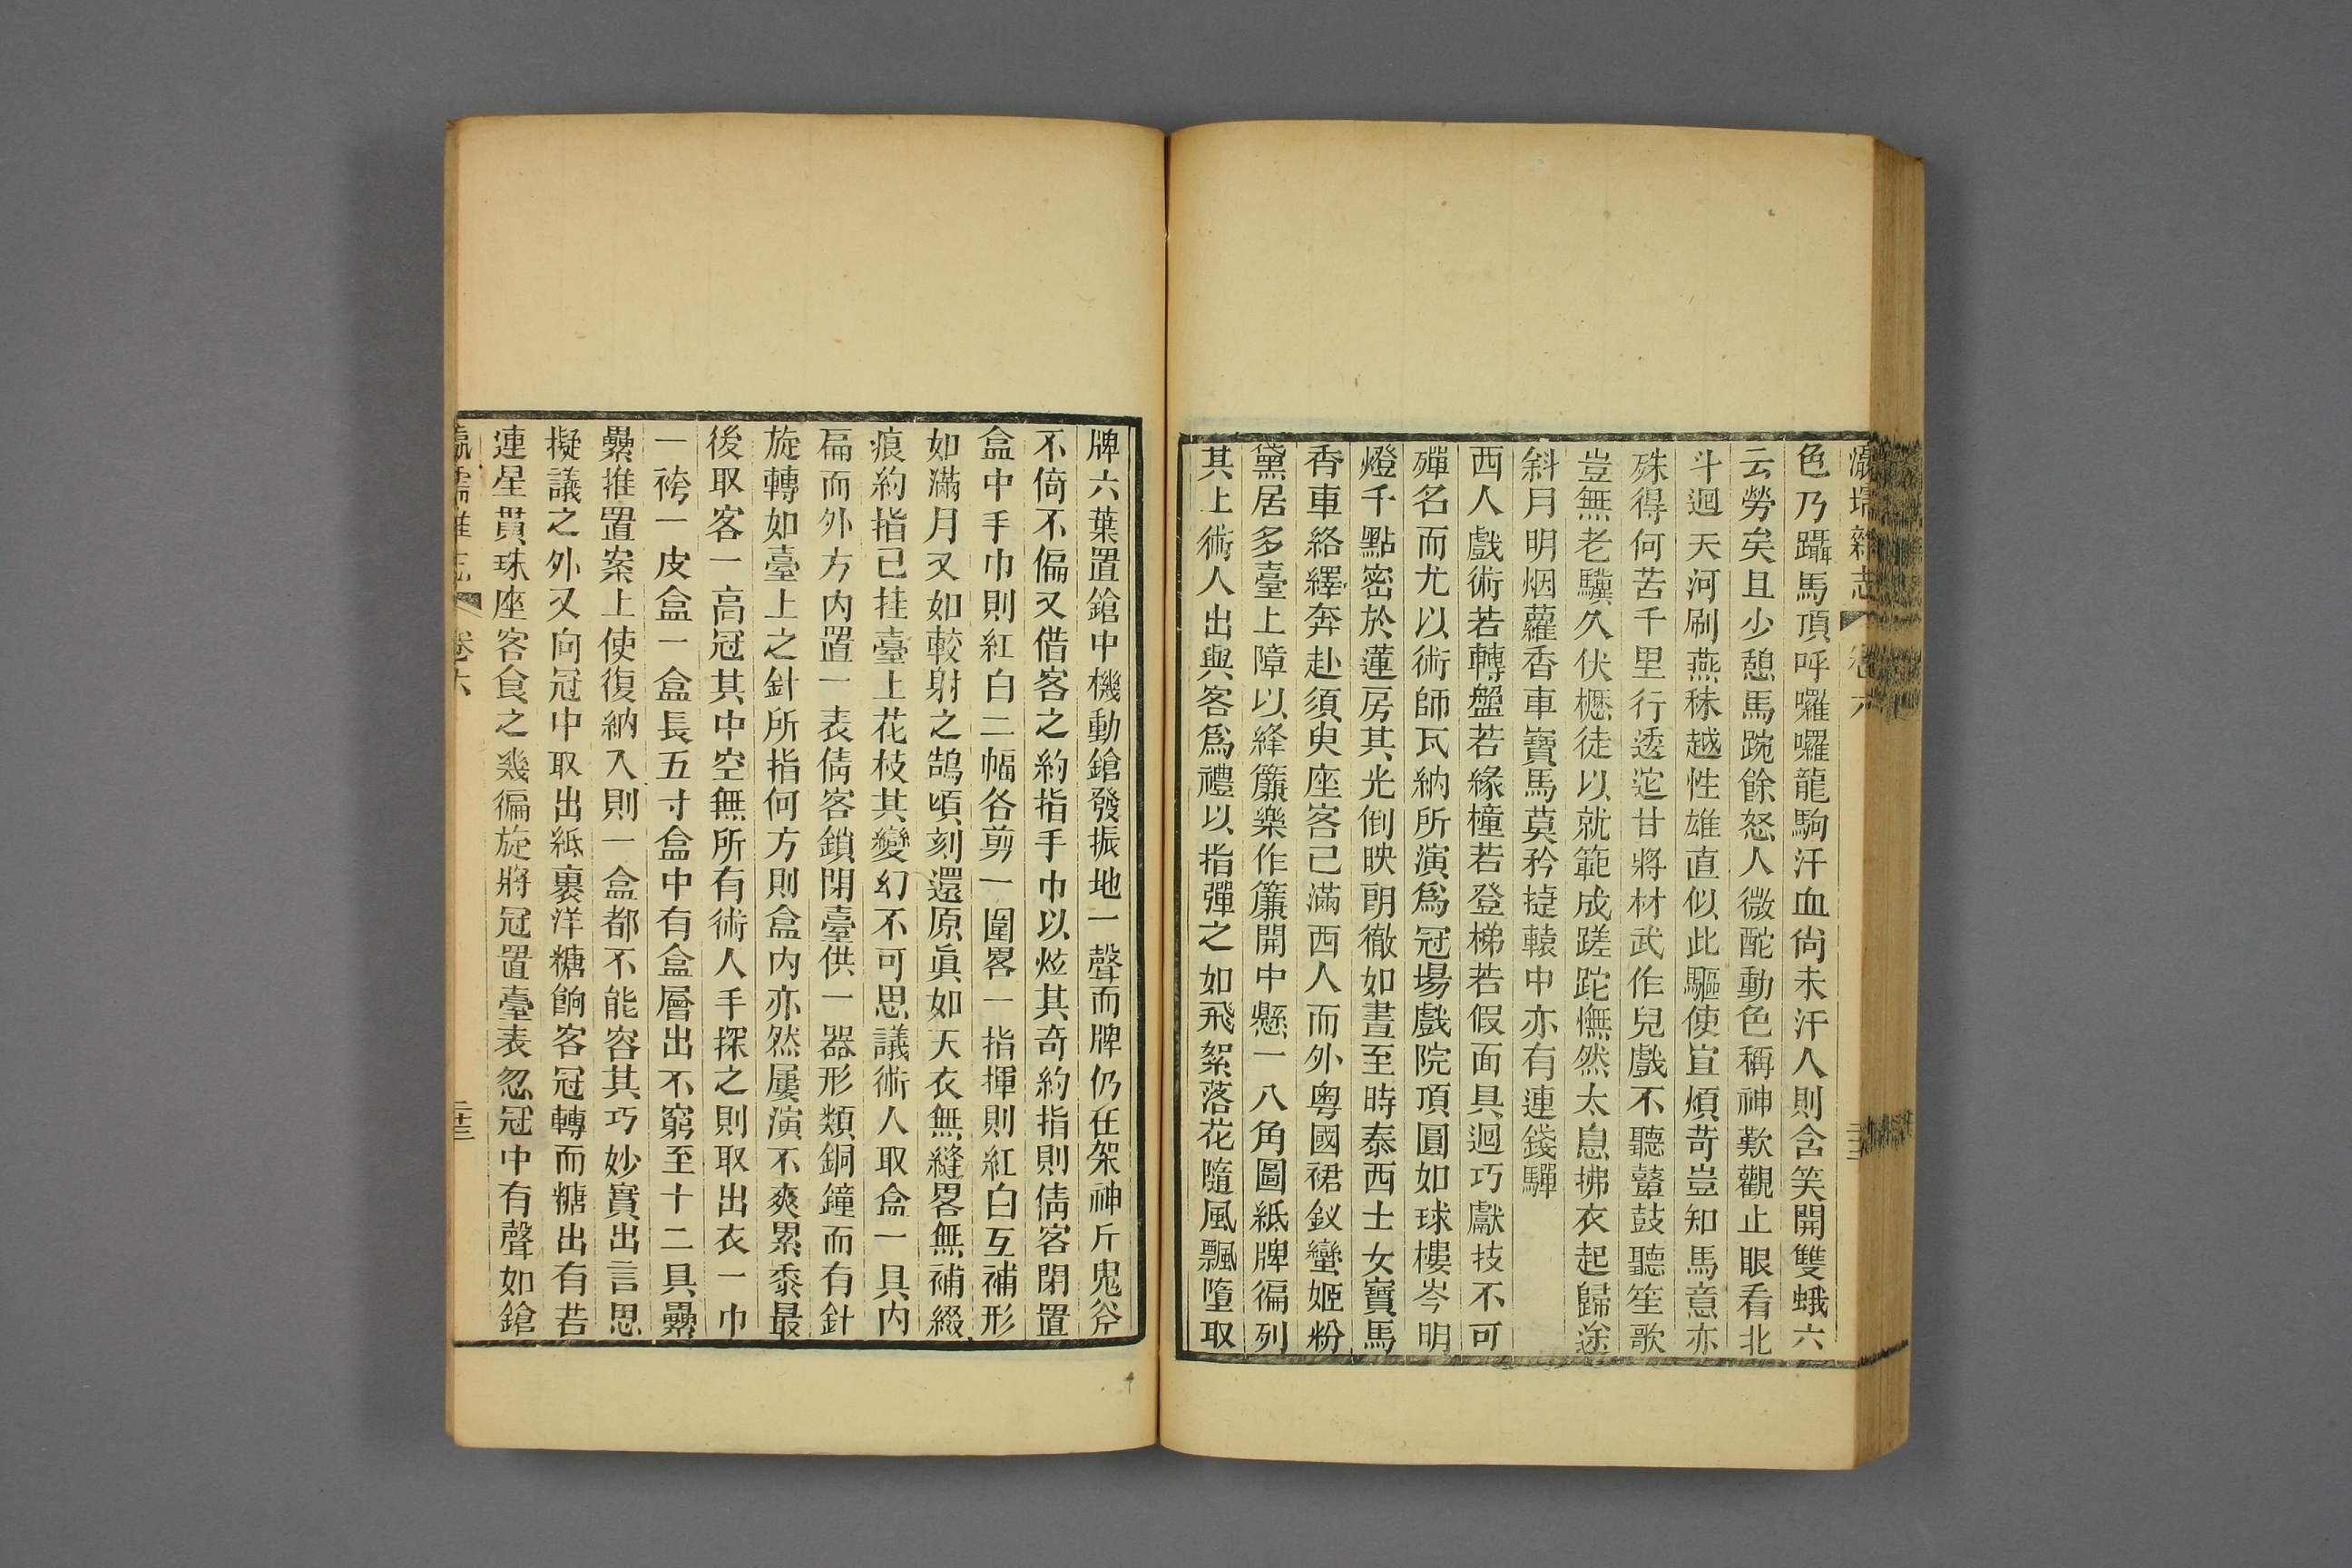 瀛壖雜志 卷六
色乃躡馬頂呼囉囉龍駒汗血尙未汗人則含笑開雙蛾六
云勞矣且少憩馬踠餘怒人微酡動色稱神歎觀止眼看北
斗迴天河刷燕秣越性雄直似此驅使宜煩苛豈知馬意亦
殊得何苦千里行逶迤甘將材武作兒戲不聽鼙鼓聽笙歌
豈無老驥久伏櫪徒以就範成蹉跎憮然太息拂衣起歸途
斜月明烟蘿香車寶馬莫矜㨗轅中亦有連錢驒
西人戲術若轉盤若緣橦若登梯若假面具迴巧獻技不可
殫名而尤以術師瓦納所演爲冠場戲院頂圓如球樓岑明
燈千點密於蓮房其光倒映朗徹如晝至時泰西士女寶馬
香車絡繹奔赴須臾座客已滿西人而外粵國裙釵蠻姬粉
黛居多臺上障以絳簾樂作簾開中懸一八角圖紙牌徧列
其上術人出與客爲禮以指彈之如飛絮落花隨風飄墮取
牌六葉置鎗中機動鎗發振地一聲而牌仍在架神斤鬼斧
不倚不偏又借客之約指手巾以炫其奇約指則倩客閉置
盒中手巾則紅白二幅各剪一圍畧一指揮則紅白互補形
如滿月又如較射之鵠頃刻還原眞如天衣無縫畧無補綴
痕約指已挂臺上花枝其變幻不可思議術人取盒一具內
扁而外方內置一表倩客鎖閉臺供一器形類銅鐘而有針
旋轉如臺上之針所指何方則盒內亦然屢演不爽累黍最
後取客一高冠其中空無所有術人手探之則取出衣一巾
一袴一皮盒一盒長五寸盒中有盒層出不窮至十二具纍
纍推置案上使復納入則一盒都不能容其巧妙實出言思
擬議之外又向冠中取出紙裹洋糖餉客冠轉而糖出有若
連星貫珠座客食之幾徧旋將冠置臺表忽冠中有聲如鎗
瀛壖雜志 卷六 二十三